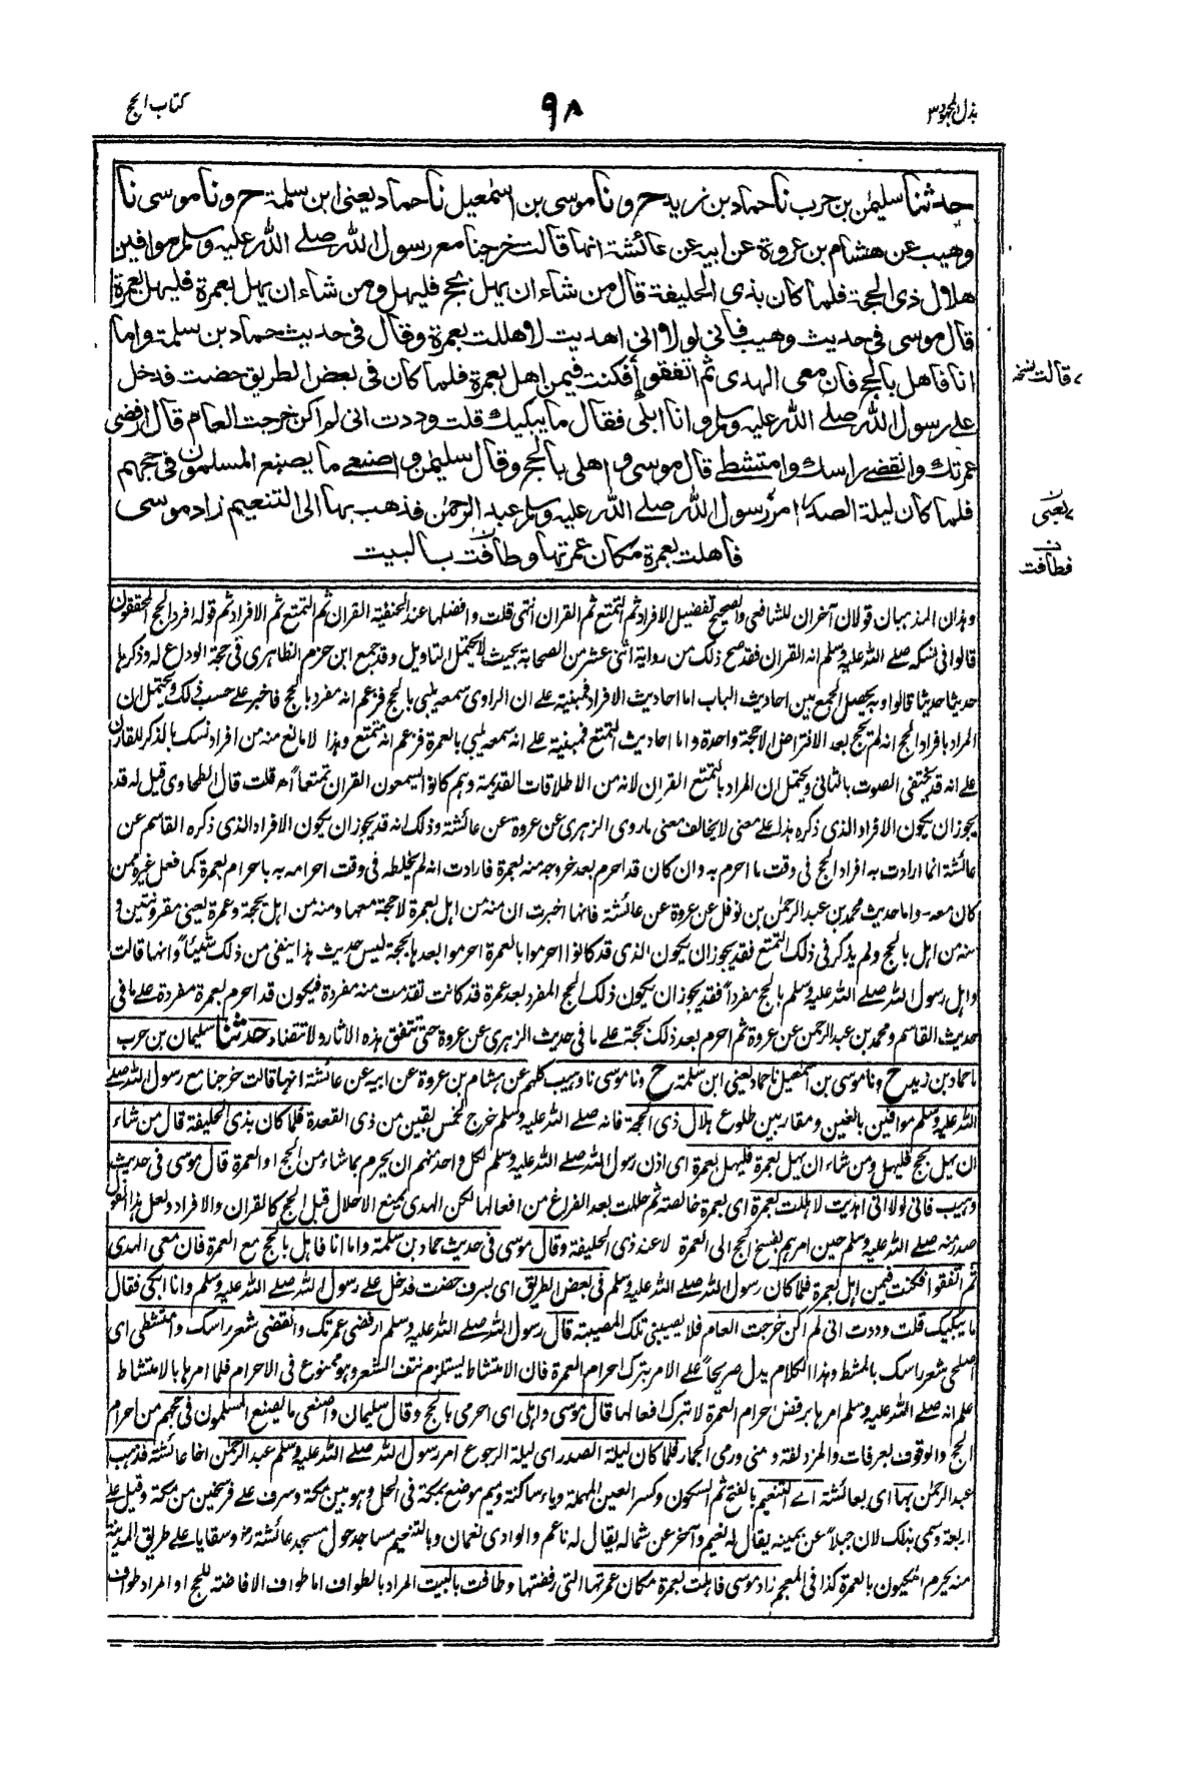 بذل المجهود ٣
٩٨
كتاب الحج
حدثنا سليمن بن حرب نا حماد بن زيد ح ونا موسى بن اسمعيل نا حماد يعنى ابن سلمة ح ونا موسى نا
وهيب عن هشام بن عروة عن ابيه عن عائشة انها قالت خرجنا مع رسول الله صلى الله عليه وسلم موافين
هلال ذى الحجة فلما كان بذى الحليفة قال من شاء ان يهل بحج فليهل ومن شاء ان يهل بعمرة فليهل بعمرة
قال موسى فى حديث وهيب فانى لولا انى اهديت لاهللت بعمرة وقال فى حديث حماد بن سلمة واما
انا فاهل بالحج فان معى الهدى ثم اتفقوا فكنت فيمن اهل بعمرة فلما كان فى بعض الطريق حضت فدخل
على رسول الله صلى الله عليه وسلم وانا ابكى فقال ما يبكيك قلت وددت انى لم اكن خرجت العام قال ارفضى
عمرتك وانقضى راسك وامتشطى قال موسى و اهلى بالحج وقال سليمن واصنعى ما يصنع المسلمون فى حجهم
فلما كان ليلة الصدر امر رسول الله صلى الله عليه وسلم عبد الرحمن فذهب بها الى التنعيم زاد موسى
فاهلت بعمرة مكان عمرتها وطافت بالبيت
قالت نسخه
يعنى
ن
فطافت
وهذان المذهبان قولان آخران للشافعى والصحيح تفضيل الافراد ثم التمتع ثم القران انتهى قلت وافضلها عند الحنفية القران ثم التمتع ثم الافراد ثم قوله افرد الحج المحققون
قالوا فى نسكه صلى الله عليه وسلم انه القران فقد صح ذلك من رواية اثنى عشر من الصحابة بحيث لا يحتمل التاويل وقد جمع ابن حزم الظاهرى فى حجة الوداع له وذكرها
حديثا حديثا قالوا وبه يحصل الجمع بين احاديث الباب اما احاديث الافراد فمبنية على ان الراوى سمعه يلبى بالحج فزعم انه مفرد بالحج فاخبر على حسب ذلك ويحتمل ان
المراد بافراد الحج انه لم يحج بعد الافتراض الا حجة واحدة واما احاديث التمتع فمبنية على انه سمعه يلبى بالعمرة فزعم انه متمتع وهذا لا مانع منه من افراد نسك بالذكر للقارن
على انه قد يختفى الصوت بالثانى ويحتمل ان المراد بالتمتع القران لانه من الاطلاقات القديمة وهم كانوا يسمعون القران تمتعاً اه قلت قال الطحاوى قيل له قد
يجوز ان يكون الافراد الذى ذكره هذا على معنى لا يخالف معنى ما روى الزهرى عن عروة عن عائشة وذلك انه قد يجوز ان يكون الافراد الذى ذكره القاسم عن
عائشة انما ارادت به افراد الحج فى وقت ما احرم به وان كان قد احرم بعد خروجه منه بعمرة فارادت انه لم يخلطه فى وقت احرامه به باحرام بعمرة كما فعل غيره ممن
كان معه - واما حديث محمد بن عبد الرحمن بن نوفل عن عروة عن عائشة فانها اخبرت ان منه من اهل بعمرة لا حجة معها ومنه من اهل بحجة وعمرة يعنى مقرونتين و
منه من اهل بالحج ولم يذكر فى ذلك التمتع فقد يجوز ان يكون الذى قد كانوا احرموا بالعمرة احرموا بعدها بحجة ليس حديث هذا ينفى من ذلك شيئاً وانها قالت
واهل رسول الله صلى الله عليه وسلم بالحج مفرداً فقد يجوز ان يكون ذلك الحج المفرد بعد عمرة قد كانت تقدمت منه مفردة فيكون قد احرم بعمرة مفردة على ما فى
حديث القاسم ومحمد بن عبد الرحمن عن عروة ثم احرم بعد ذلك بحجة على ما فى حديث الزهرى عن عروة حتى تتفق هذه الاثار ولا تتضاد حدثنا سليمان بن حرب
نا حماد بن زيد ح ونا موسى بن اسمعيل نا حماد يعنى ابن سلمة ح ونا موسى نا وهيب كلهم عن هشام بن عروة عن ابيه عن عائشة انها قالت خرجنا مع رسول الله صلى
الله عليه وسلم موافين بالغين ومقاربين طلوع هلال ذى الحجة فانه صلى الله عليه وسلم خرج لخمس بقين من ذى القعدة فلما كان بذى الحليفة قال من شاء
ان يهل بحج فليهل ومن شاء ان يهل بعمرة فليهل بعمرة اى اذن رسول الله صلى الله عليه وسلم لكل واحد منهم ان يحرم بما شاء من الحج او العمرة قال موسى فى حديث
وهيب فانى لولا انى اهديت لاهللت بعمرة اى بعمرة خالصة ثم حللت بعد الفراغ من افعالها لكن الهدى يمنع الاحلال قبل الحج كالقران والافراد ولعل هذا القول
صدر منه صلى الله عليه وسلم حين امرهم بفسخ الحج الى العمرة لا عند ذى الحليفة وقال موسى فى حديث حماد بن سلمة واما انا فاهل بالحج مع العمرة فان معى الهدى
ثم اتفقوا فكنت فيمن اهل بعمرة فلما كان رسول الله صلى الله عليه وسلم فى بعض الطريق اى بسرف حضت فدخل على رسول الله صلى الله عليه وسلم وانا ابكى فقال
ما يبكيك قلت وددت انى لم اكن خرجت العام فلا يصيبنى تلك المصيبة قال رسول الله صلى الله عليه وسلم ارفضى عمرتك وانقضى شعر راسك وامتشطى اى
اصلحى شعر راسك بالمشط وهذا الكلام يدل صريحاً على الامر بترك احرام العمرة فان الامتشاط يستلزم نتف الشعر وهو ممنوع فى الاحرام فلما امرها بالامتشاط
علم انه صلى الله عليه وسلم امرها برفض احرام العمرة لا بترك افعالها قال موسى واهلى اى احرمى بالحج وقال سليمان واصنعى ما يصنع المسلمون فى حجهم من احرام
الحج والوقوف بعرفات والمزدلفة ومنى ورمى الجمار فلما كان ليلة الصدر اى ليلة الرجوع امر رسول الله صلى الله عليه وسلم عبد الرحمن اخا عائشة فذهب
عبد الرحمن بها اى بعائشة الى التنعيم بالفتح ثم السكون وكسر العين المهملة وياء ساكنة وميم موضع بمكة فى الحل وهو بين مكة وسرف على فرسخين من مكة وقيل على
اربعة وسمى بذلك لان جبلاً عن يمينه يقال له نعيم وآخر عن شماله يقال له ناعم والوادى نعمان وبالتنعيم مساجد حول مسجد عائشة رض وسقايا على طريق المدينة
منه يحرم المكيون بالعمرة كذا فى المعجم زاد موسى فاهلت بعمرة مكان عمرتها التى رفضتها وطافت بالبيت المراد بالطواف اما طواف الافاضة للحج او المراد طواف